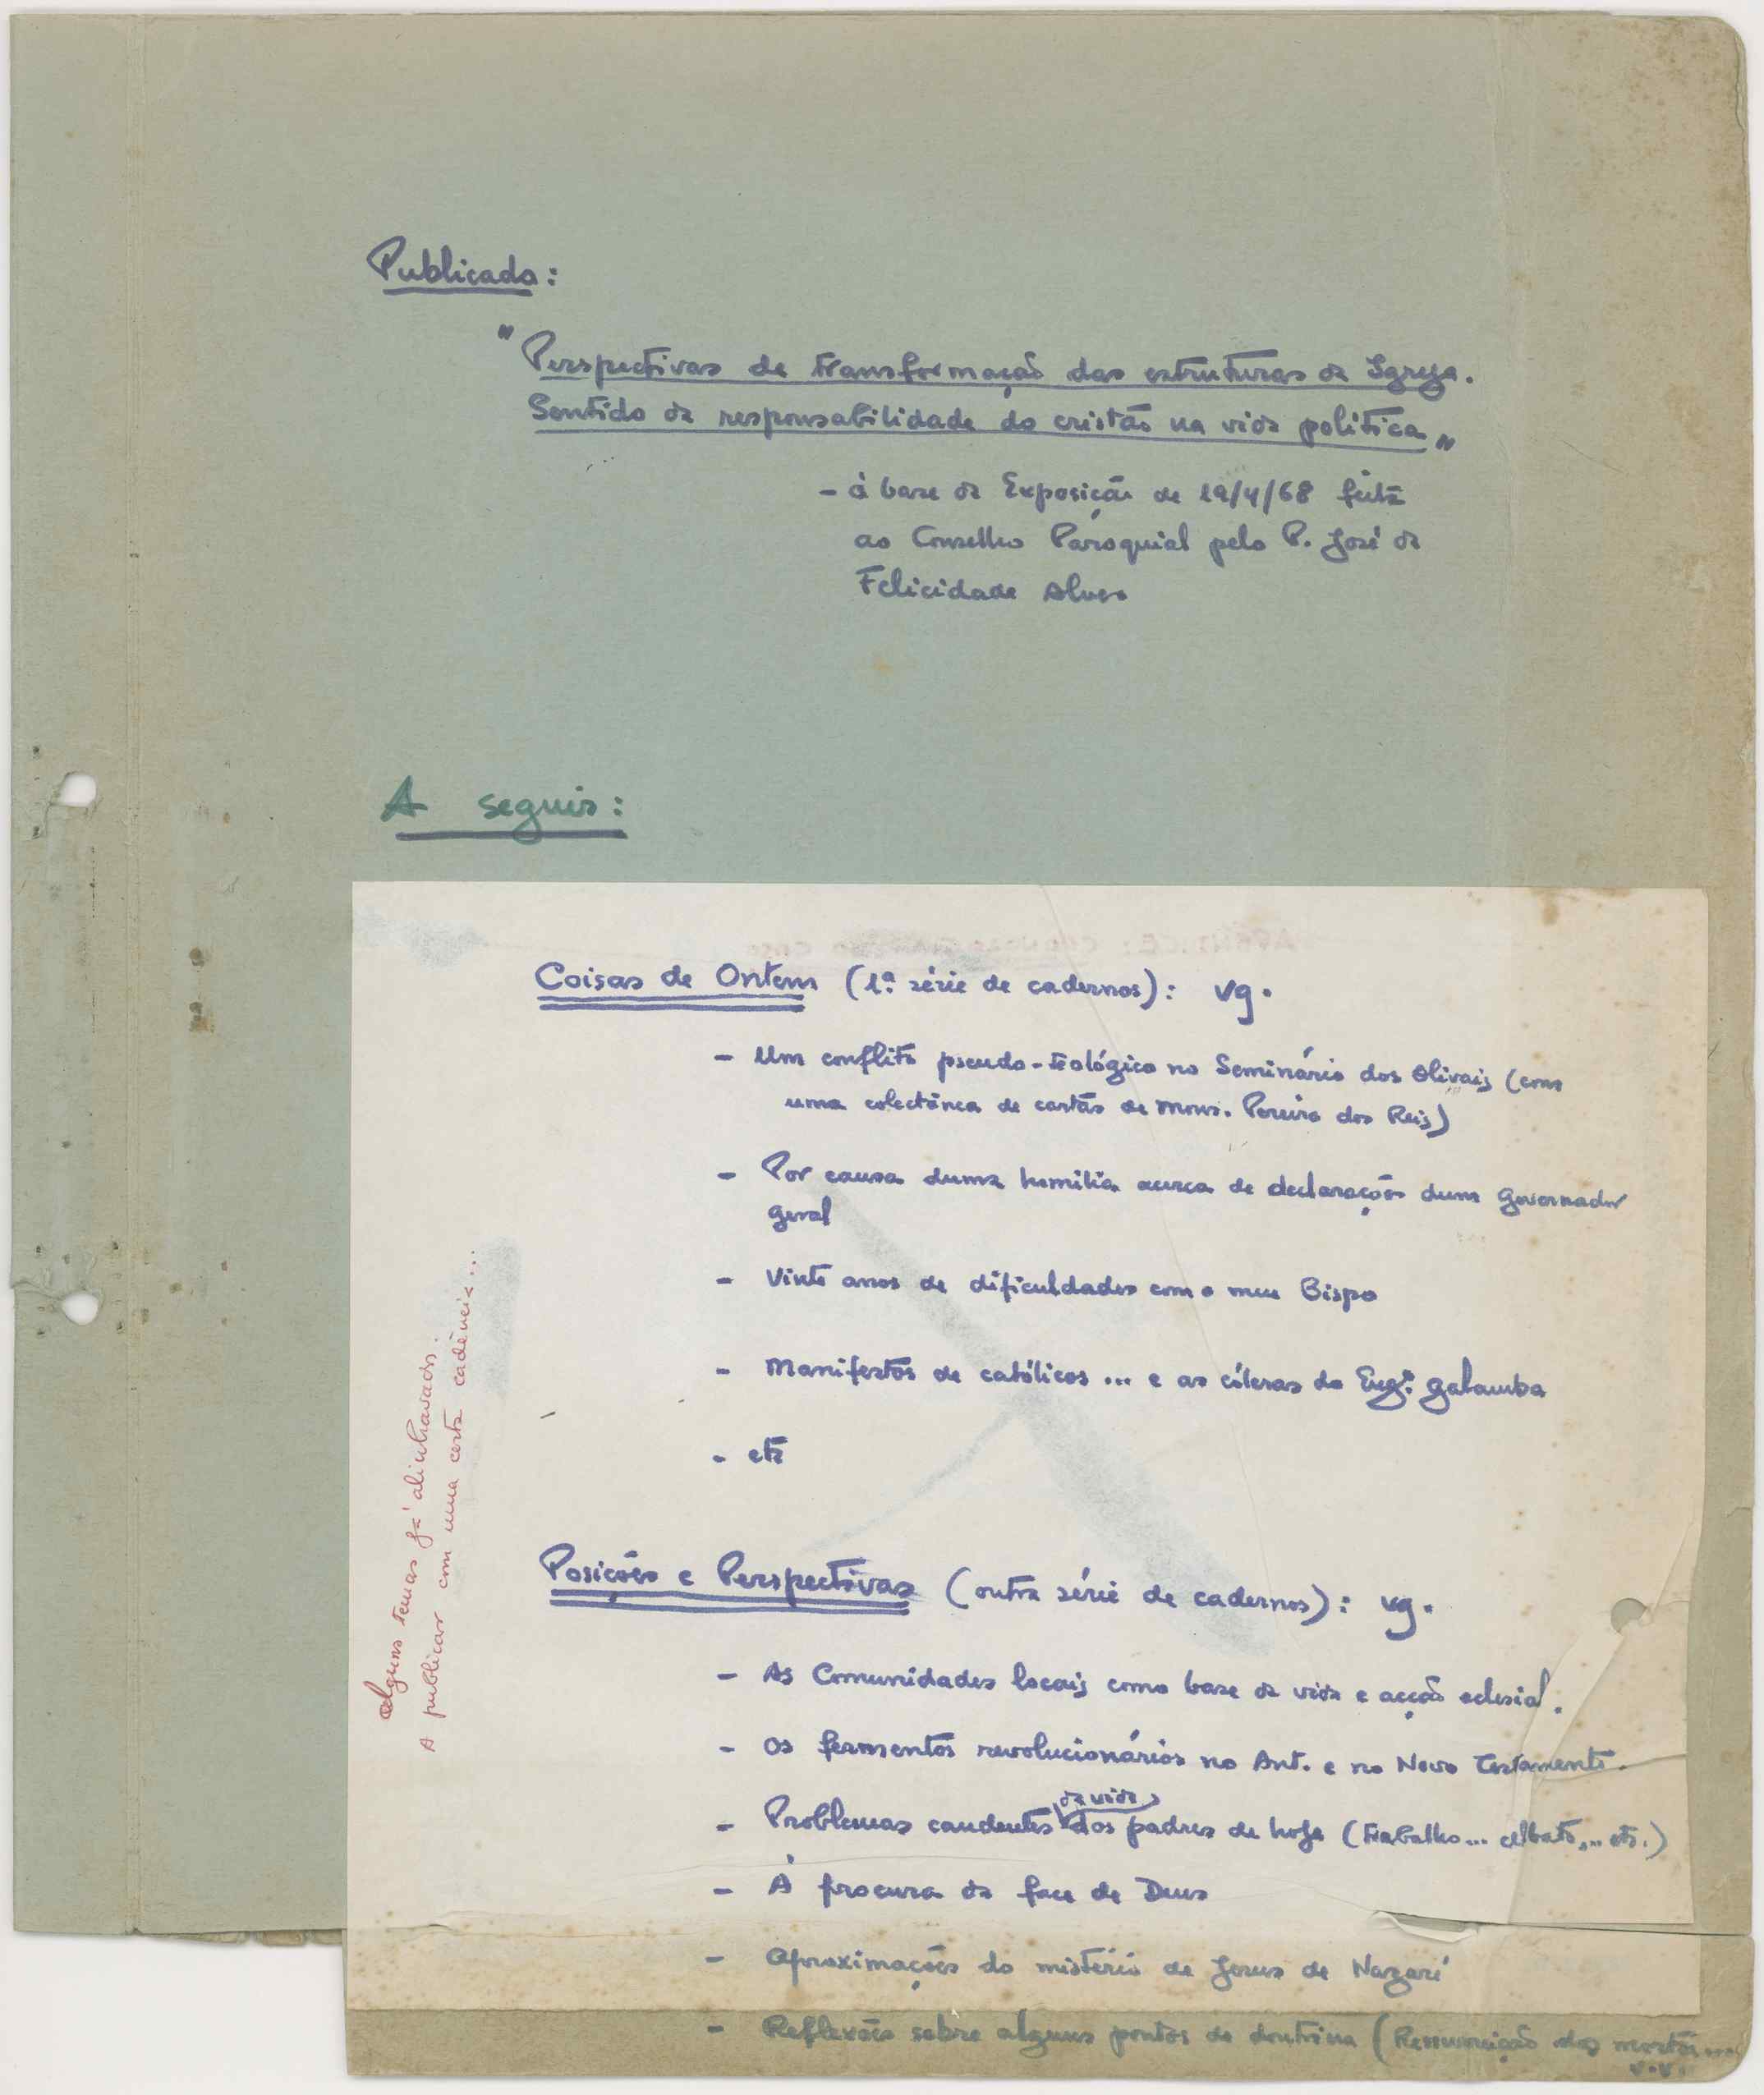 Publicado:
"Perspectivas de transformação das estruturas da Igreja.
Sentido da responsabilidade do cristão na vida política"
- à base da Exposição de 19/4/68 feita
ao Conselho Paroquial pelo P. José da
Felicidade Alves
A seguir:
Coisas de Ontem (1ª série de cadernos): vg.
- Um conflito pseudo-teológico no Seminário dos Olivais (com
uma colectânea de cartas de Mons. Pereira dos Reis)
- Por causa duma homilia acerca de declarações dum Governador
geral
- Vinte anos de dificuldades com o meu Bispo
- Manifestos de católicos ... e as cóleras do Engº. Galamba
- etc
Posições e Perspectivas (outra série de cadernos): vg.
- As Comunidades locais como base da vida e acção eclesial.
- Os fermentos revolucionários no Ant. e no Novo Testamento.
- Problemas candentes da vida dos padres de hoje (Trabalho... celibato,.. etc.)
- À procura da face de Deus
- Aproximações do mistério de Jesus de Nazaré
- Reflexões sobre alguns pontos de doutrina (Ressurreição dos mortos...
v.v.
Alguns temas já alinhavados.
A publicar com uma certa cadência...